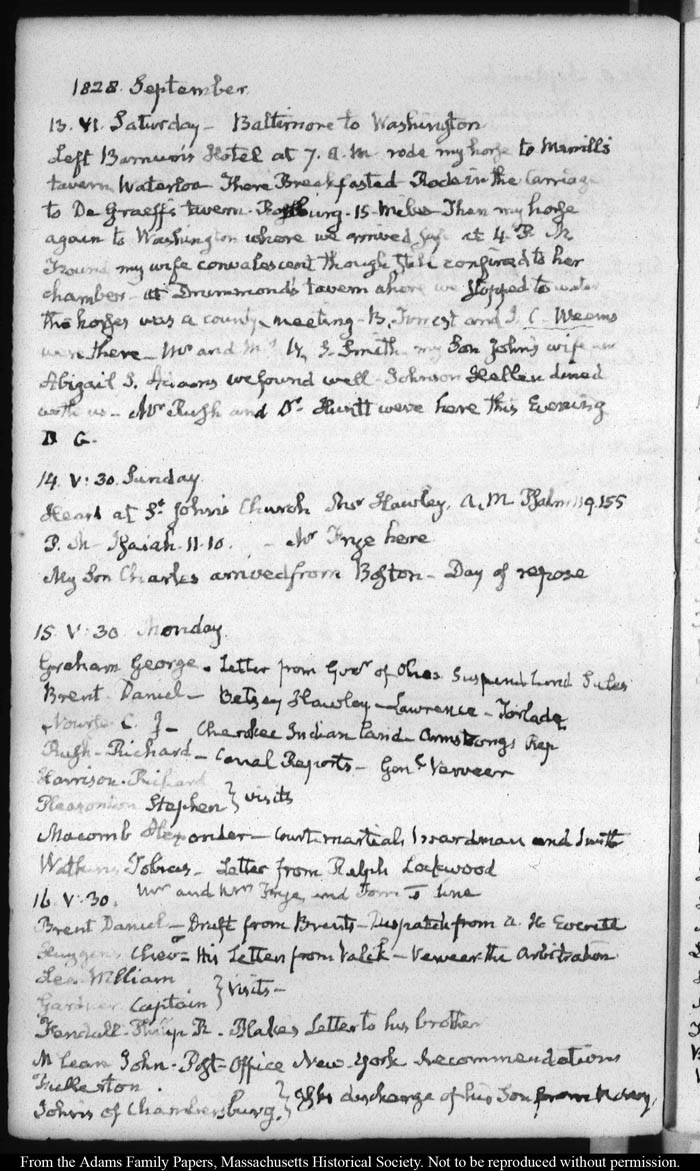 1828. September.
13. VI. Saturday - Baltimore to Washington
Left Barnum's Hotel at 7. A.M. rode my horse to Merrill's
tavern Waterloo There Breakfasted Rode in the Carriage
to De Graeff's tavern. 15 Miles Then my horse
again to Washington where we arrived safe at 4. P.M.
Found my wife convalescent though still confined to her
chamber - at Drummond's tavern where we stopped to water
the horses was a county meeting - B. Forrest and J. C. Weems
were there - Mr and Mrs W. S. Smith my Son John's wife and
Abigail S. Adams we found well - Johnson Hellen dined
with us - Mr Rush and Dr Huntt were here this Evening
D G.
14. V: 30. Sunday.
Heard at St John's Church Mr Hawley. A.M. Psalm 119.155
P.M. Isaiah. 11. 10. - Mr Frye here
My Son Charles arrived from Boston - Day of repose
15. V: 30. Monday.
Graham George. Letter from Govr of Ohio Suspend Land Sales
Brent Daniel - Betsey Hawley - Lawrence - Torlade
Nourse C. J - Cherokee Indian Land - Armstrongs Rep
Rush - Richard - Canal Reports - Genl Verveer
Harrison. Richard
Pleasonton Stephen } visits
Macomb Alexander - Courts martial, Boardman and Smith
Watkins Tobias - Letter from Ralph Lockwood
Mr and Mrs Frye, and
16. V: 30.
Brent Daniel - Draft from Brents - Despatch from A. H Everett
Huygens Chevr - His Letter from Valck - Verveer the Arbitration
Lee William
Gardner Captain } visits -
Fendall - Philip R. - Blake's Letter to his brother
McLean John - Post-Office New-York Recommendations
Fullerton.
Johns of Chambersburg. } discharge of his Son from Navy.
From the Adams Family Papers, Massachusetts Historical Society. Not to be reproduced without permission.